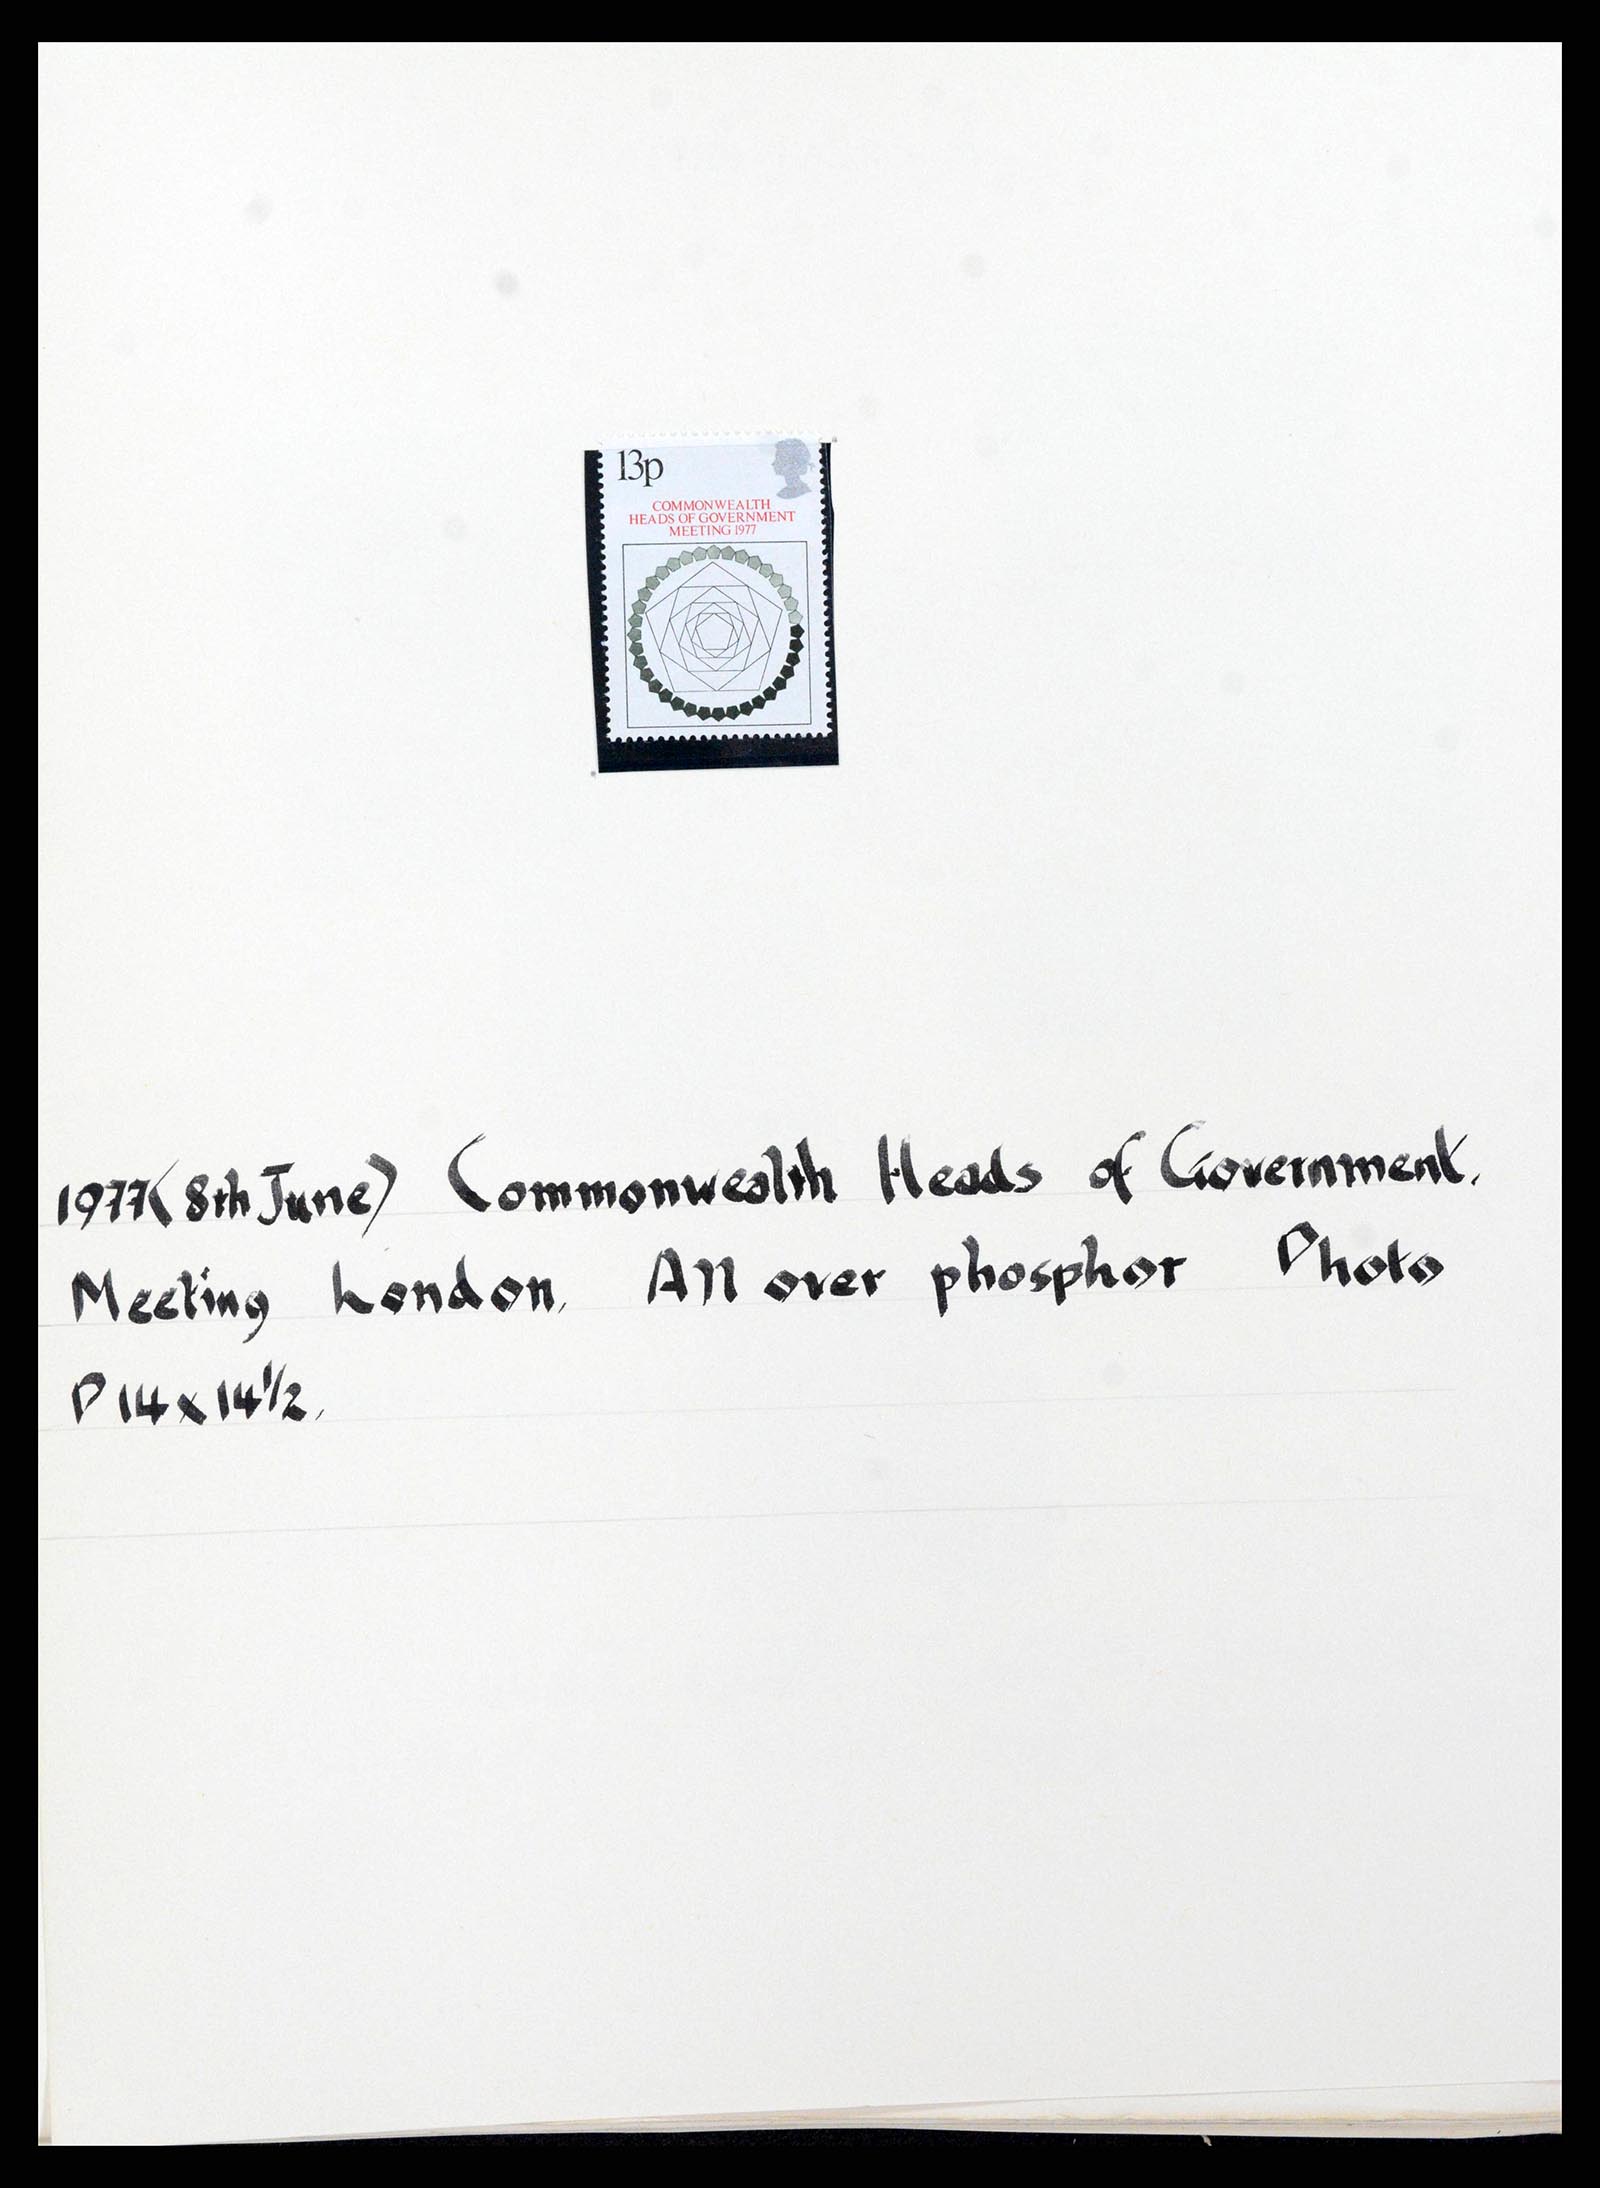 13p
COMMONWEALTH
HEADS OF GOVERNMENT
MEETING 1977
1977(8th June) Commonwealth Heads of Government.
Meeting London. All over phosphor Photo
P 14 x 14½.